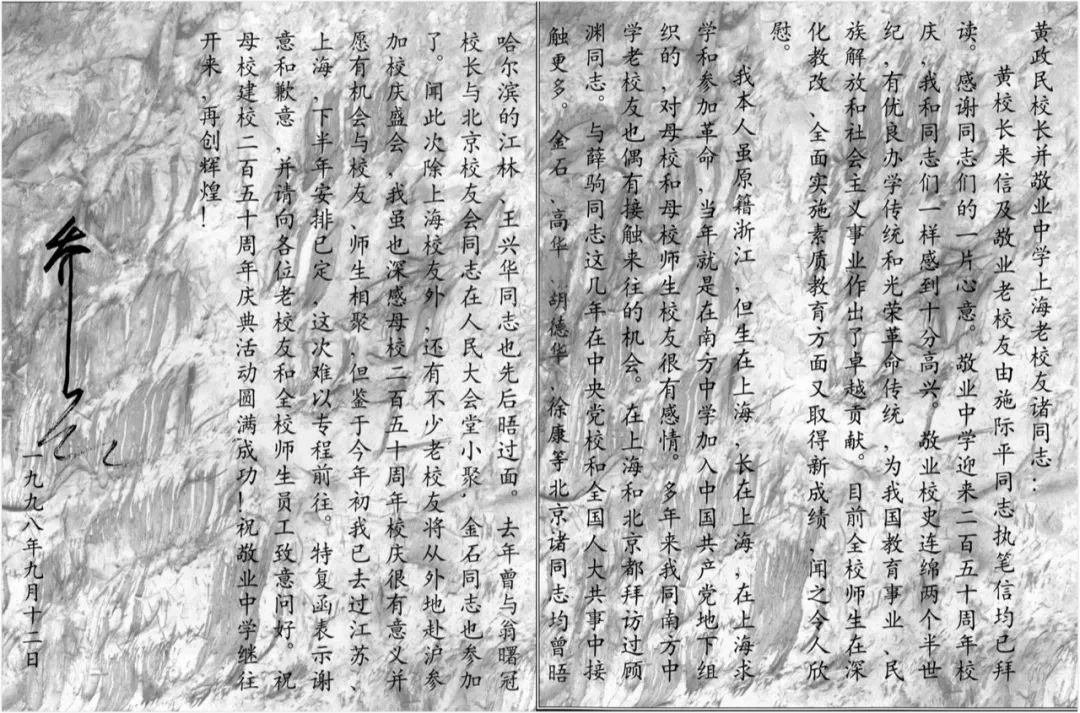 黄政民校长并敬业中学上海老校友诸同志：
黄校长来信及敬业老校友由施际平同志执笔信均已拜
读。感谢同志们的一片心意。敬业中学迎来二百五十周年校
庆，我和同志们一样感到十分高兴。敬业校史连绵两个半世
纪，有优良办学传统和光荣革命传统，为我国教育事业、民
族解放和社会主义事业作出了卓越贡献。目前全校师生在深
化教改、全面实施素质教育方面又取得新成绩、闻之令人欣
慰。
我本人虽原籍浙江，但生在上海，长在上海，在上海求
学和参加革命，当年就是在南方中学加入中国共产党地下组
织的，对母校和母校师生校友很有感情。多年来我同南方中
学老校友也偶有接触来往的机会。在上海和北京都拜访过顾
渊同志。与薛驹同志这几年在中央党校和全国人大共事中接
触更多。金石、高华、胡德华、徐康等北京诸同志均曾晤
哈尔滨的江林、王兴华同志也先后晤过面。去年曾与翁曙冠
校长与北京校友会同志在人民大会堂小聚，金石同志也参加
了。闻此次除上海校友外，还有不少老校友将从外地赴沪参
加校庆盛会，我虽也深感母校二百五十周年校庆很有意义并
愿有机会与校友、师生相聚，但鉴于今年初我已去过江苏、
上海，下半年安排已定，这次难以专程前往。特复函表示谢
意和歉意，并请向各位老校友和全校师生员工致意问好。祝
母校建校二百五十周年庆典活动圆满成功！祝敬业中学继往
开来，再创辉煌！
一九九八年九月十二日